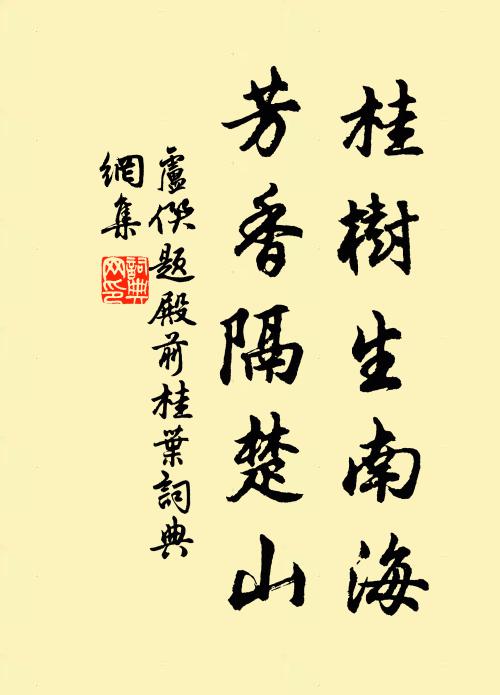 桂樹生南海
芳香隔楚山
盧僎題殿前桂葉詞典
網集
詞典
网印